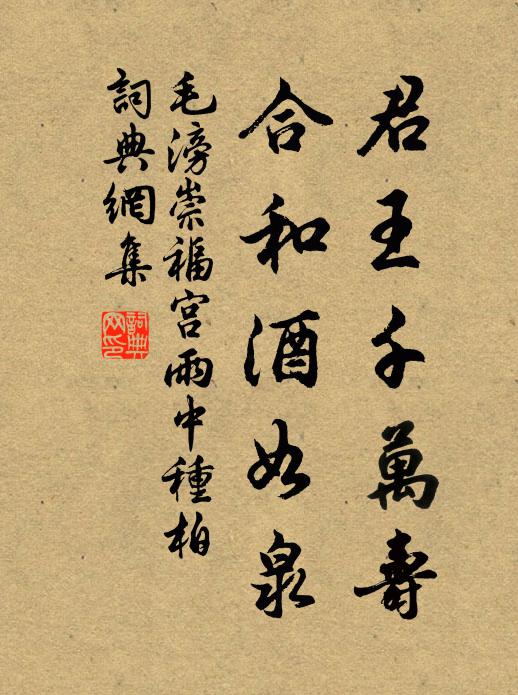 君王千萬壽
合和酒如泉
毛滂崇福宮雨中種柏
詞典網集
詞典
网印